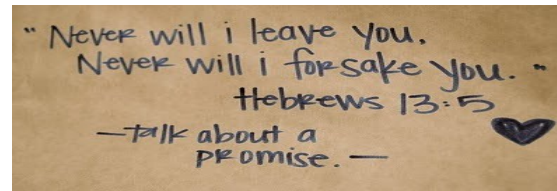 " Never will i leave you.
Never will i forsake you. "
Hebrews 13:5
—talk about a
promise. —